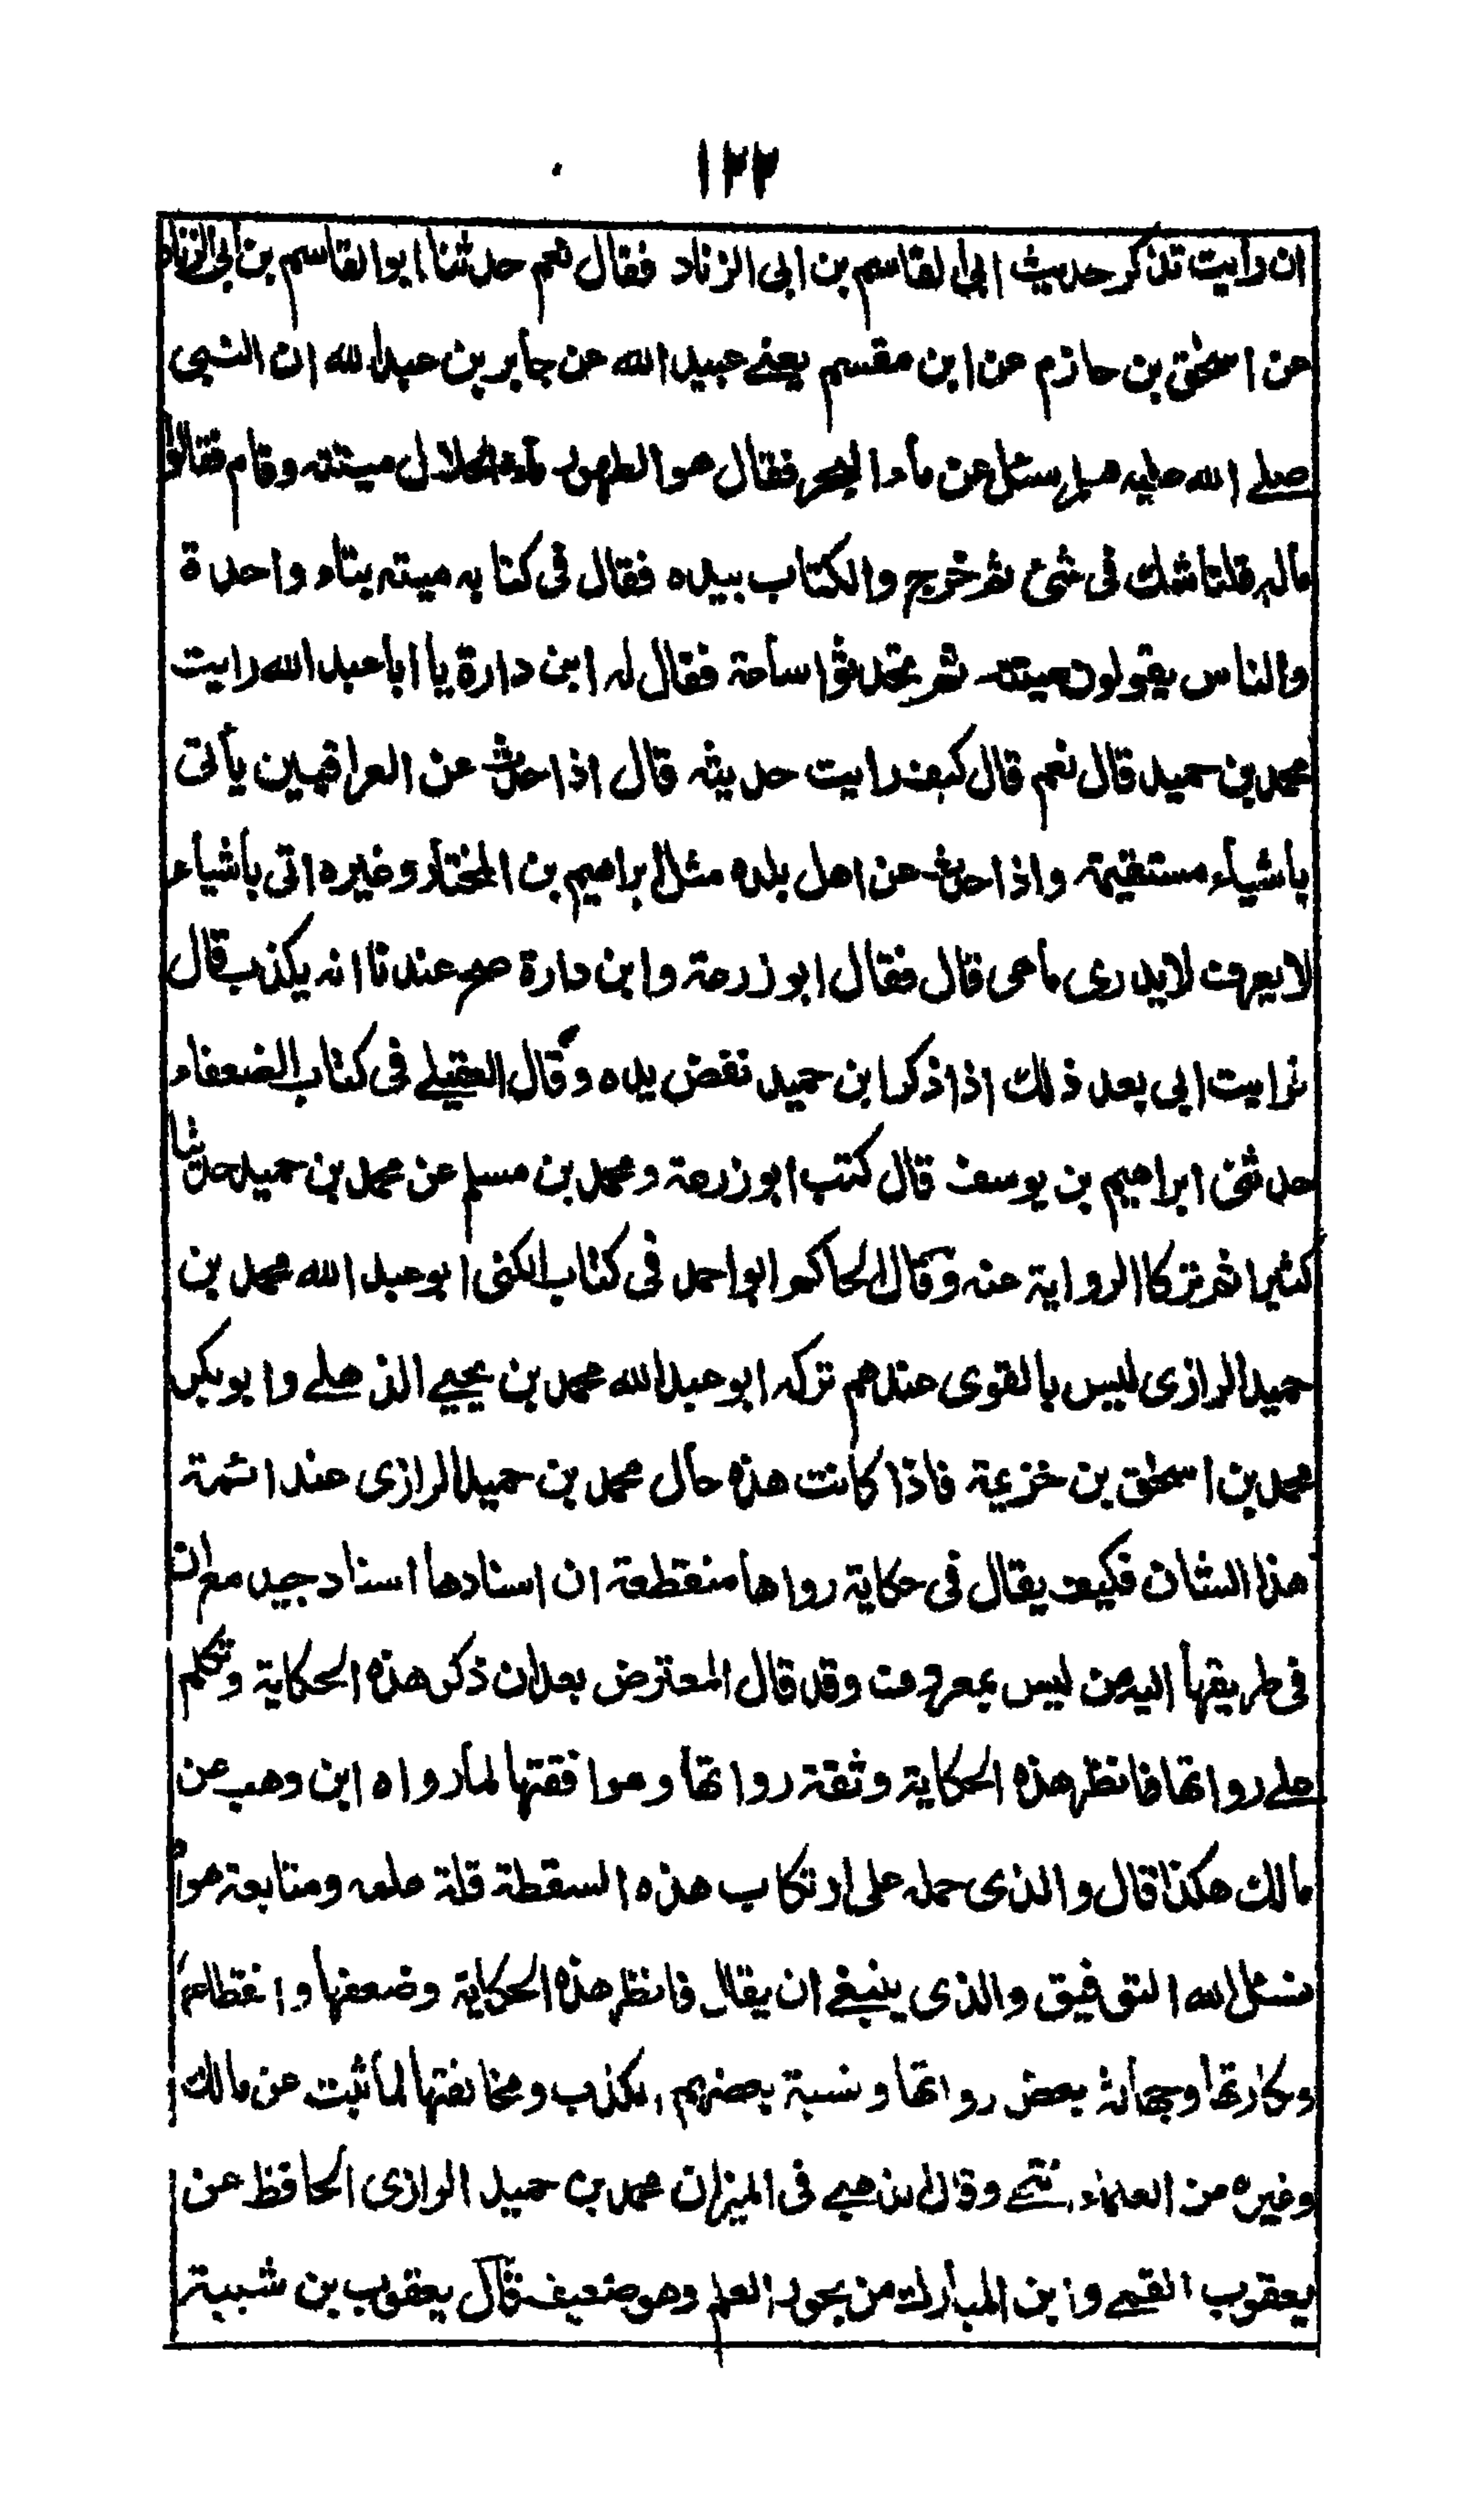 ١٢٢
ان رأيت تذكر حديث ابى القاسم بن ابى الزناد فقال نعم حدثنا ابو القاسم بن ابى الزناد
عن اسحٰق بن حازم عن ابن مقسم يعنے عبيد الله عن جابر بن عبد الله ان النبى
صلے الله عليه وسلم سئل عن ماء البحر فقال هو الطهور ماءه الحلال ميتته وقام فقالوا
ماله قلنا شك فى شئ ثم خرج والكتاب بيده فقال فى كتابه ميته بتاء واحدة
والناس يقولون ميتته ثم تحدثوا ساعة فقال له ابن دارة يا ابا عبد الله رايت
محمد بن حميد قال نعم قال كيف رايت حديثه قال اذا حدث عن العراقيين يأتى
بأشياء مستقيمة واذا حدث عن اهل بلده مثل ابراهيم بن المختار وغيره اتى بأشياء
لا يعرف لا يدرى ما هى قال فقال ابو زرعة وابن دارة صح عندنا انه يكذب قال
فرايت ابى بعد ذلك اذا ذكر ابن حميد نفض يده وقال العقيلے فى كتاب الضعفاء
حدثنى ابراهيم بن يوسف قال كتب ابو زرعة ومحمد بن مسلم عن محمد بن حميد حديثا
كثيرا ثم تركا الرواية عنه وقال الحاكم ابو احمد فى كتاب الكنى ابو عبد الله محمد بن
حميد الرازى ليس بالقوى عندهم تركه ابو عبد الله محمد بن يحيے الذهلے وابو بكر
محمد بن اسحٰق بن خزيمة فاذا كانت هذه حال محمد بن حميد الرازى عند ائمة
هذا الشان فكيف يقال فى حكاية رواها منقطعة ان اسنادها اسناد جيد مع ان
فى طريقها اليه من ليس بمعروف وقد قال المعترض بعد ان ذكر هذه الحكاية وتكلم
علے رواتها فانظر هذه الحكاية وثقة رواتها وموافقتها لما رواه ابن وهب عن
مالك هكذا قال والذى حمله على ارتكاب هذه السقطة قلة علمه ومتابعة هواه
نسئل الله التوفيق والذى ينبغے ان يقال فانظر هذه الحكاية وضعفها وانقطاعها
ونكارتها وجهالة بعض رواتها ونسبة بعضهم الى الكذب ومخالفتها لما ثبت عن مالك
وغيره من العلماء انتهے وقال الذهبے فى الميزان محمد بن حميد الرازى الحافظ عن
يعقوب القمے وابن المبارك من بحور العلم وهو ضعيف قال يعقوب بن شيبة